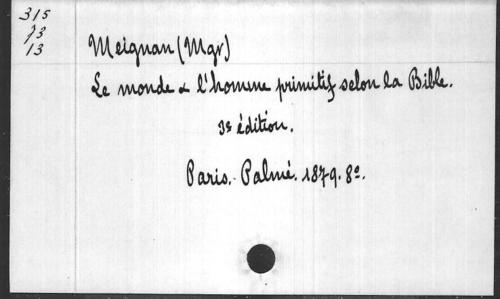 315
J3
13
Meignan (Mgr)
Le monde & l'homme primitif selon la Bible.
3e édition.
Paris. Palmé. 1879. 8o.